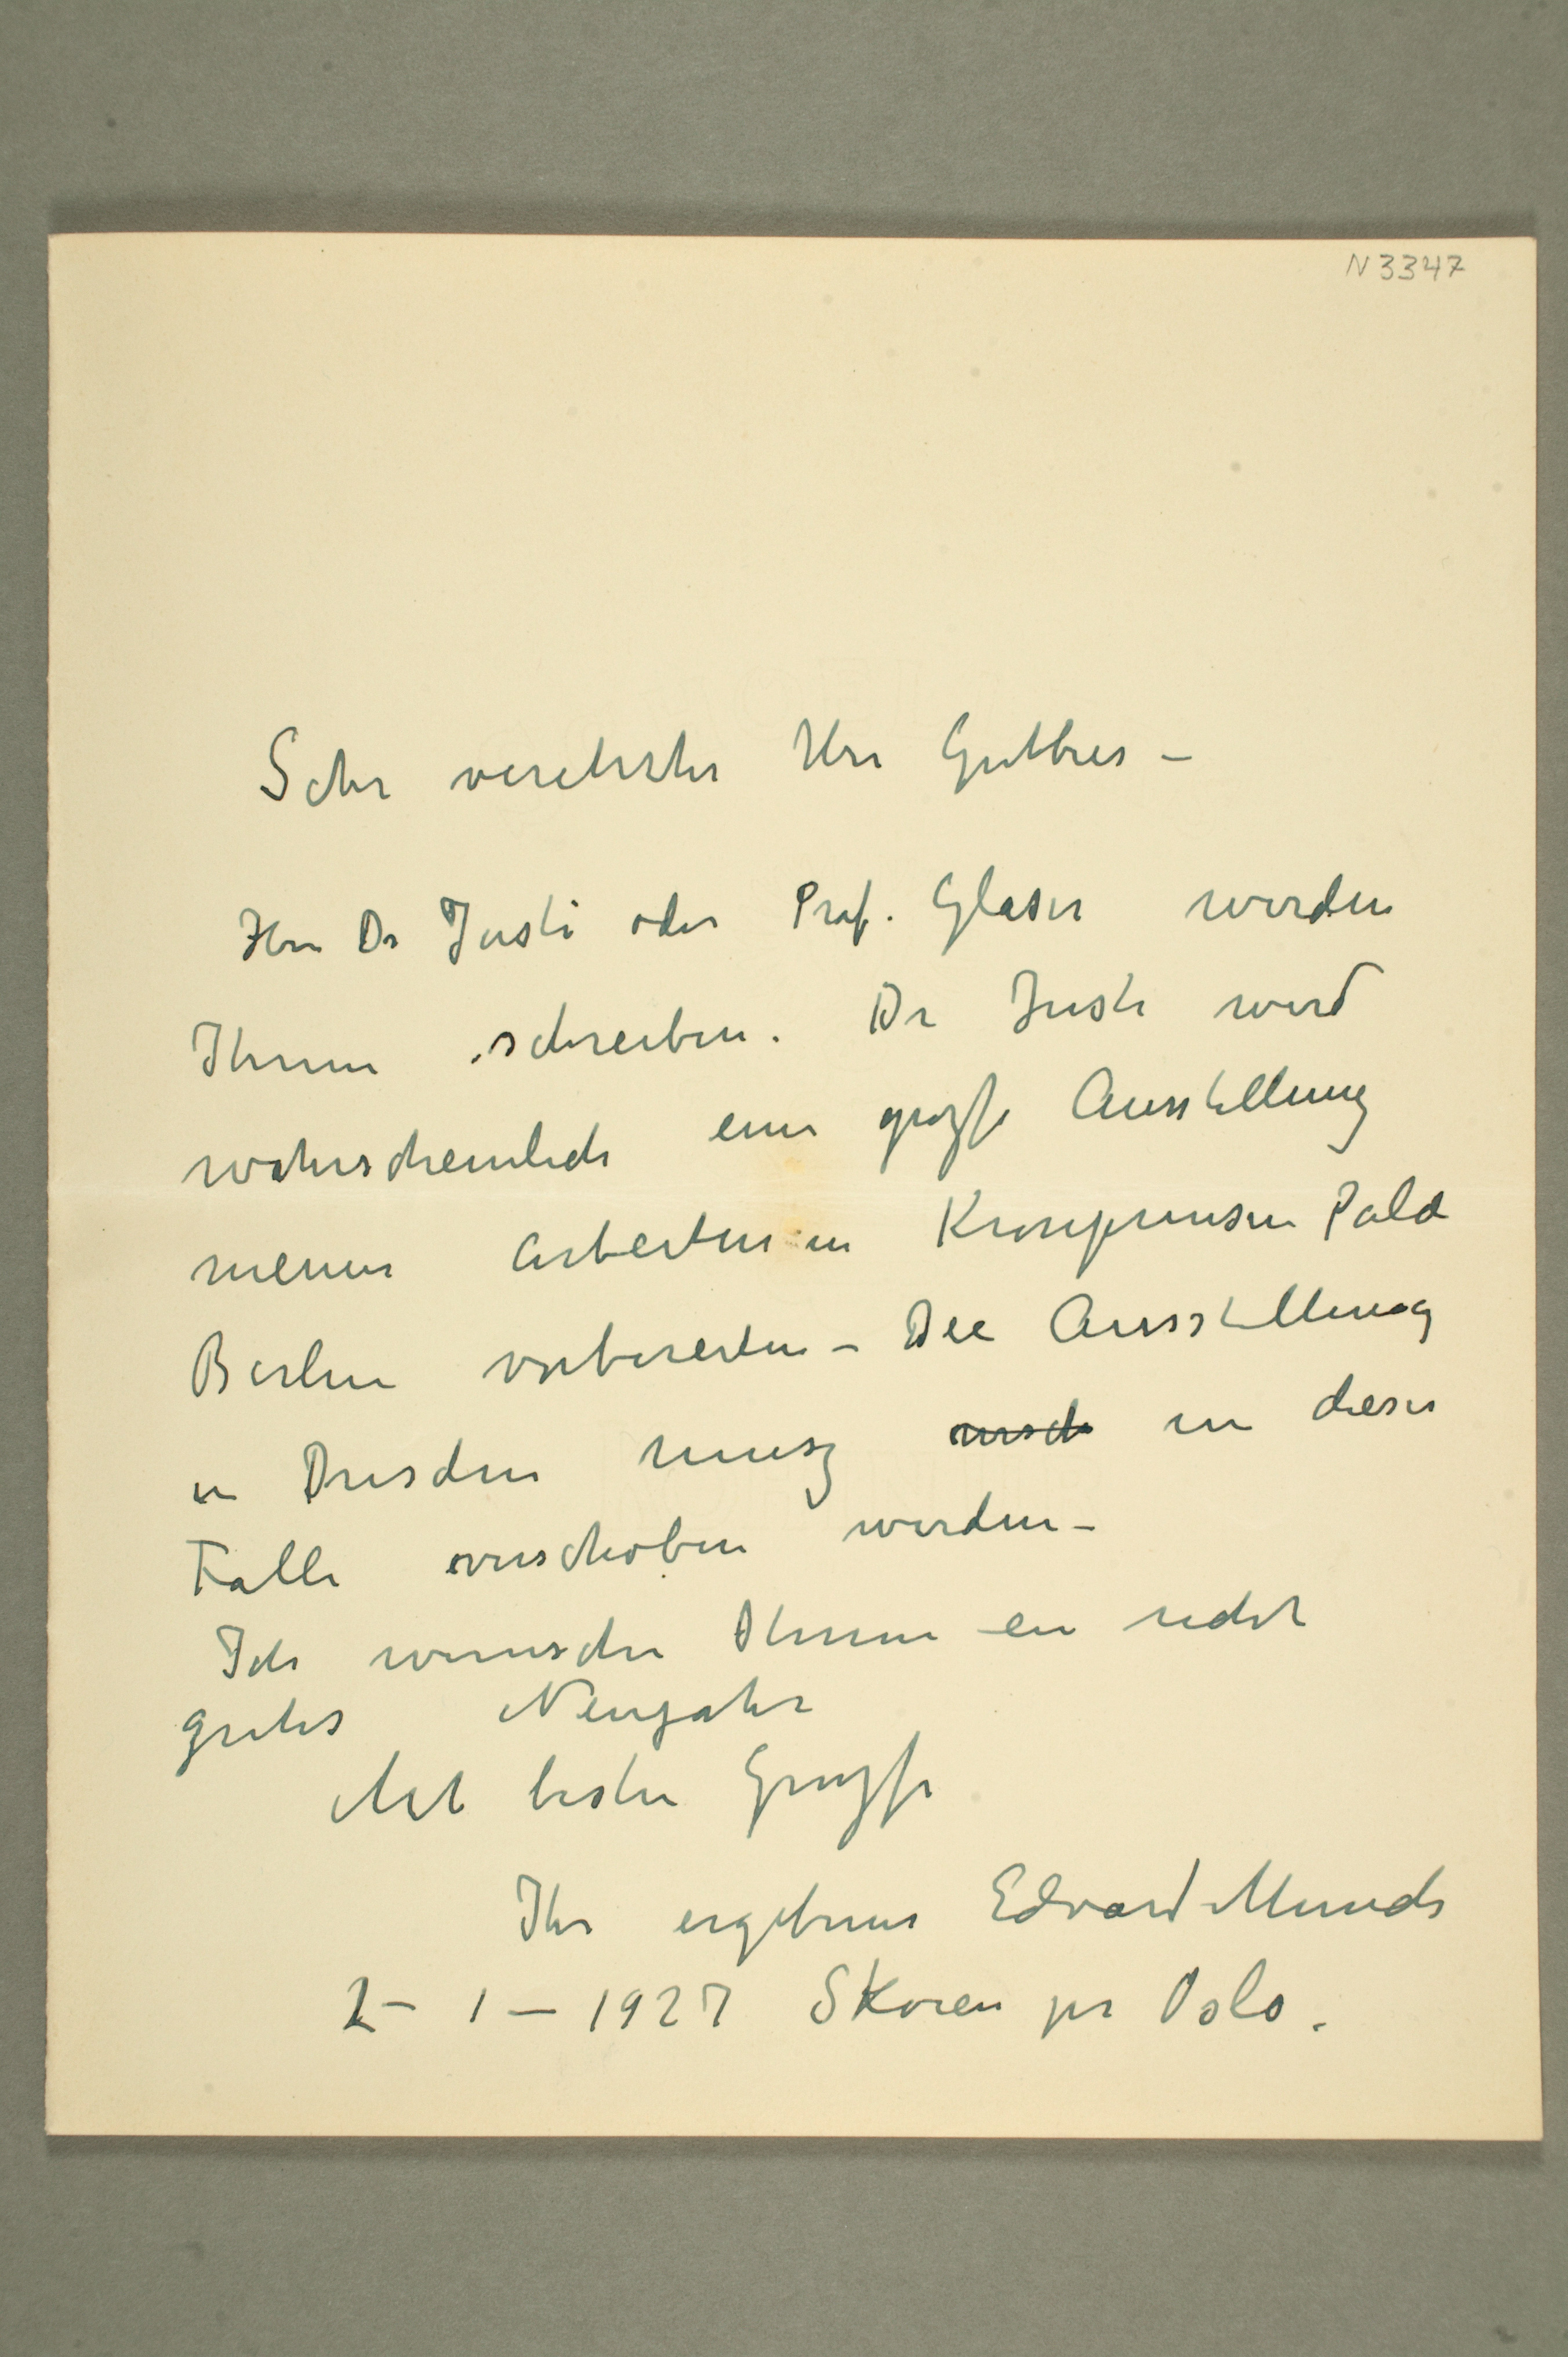 N 3347
Sehr verehrter Herr Gutbier –
Herr Dr Justi oder Prof. Glaser werden
Ihnen schreiben. Dr Justi wird
wahrscheinlich eine große Ausstellung
meiner Arbeiten in Kronprinsen Pala
Berlin vorbereiten – Die Ausstellung
in Dresden musz in dieser
Falle verschoben werden –
Ich wunsche Ihnen ein recht
gutes Neujahr
Mit besten Gruße
Ihr ergebener Edvard Munch
2 – 1 – 1927 Skøien pr Oslo.